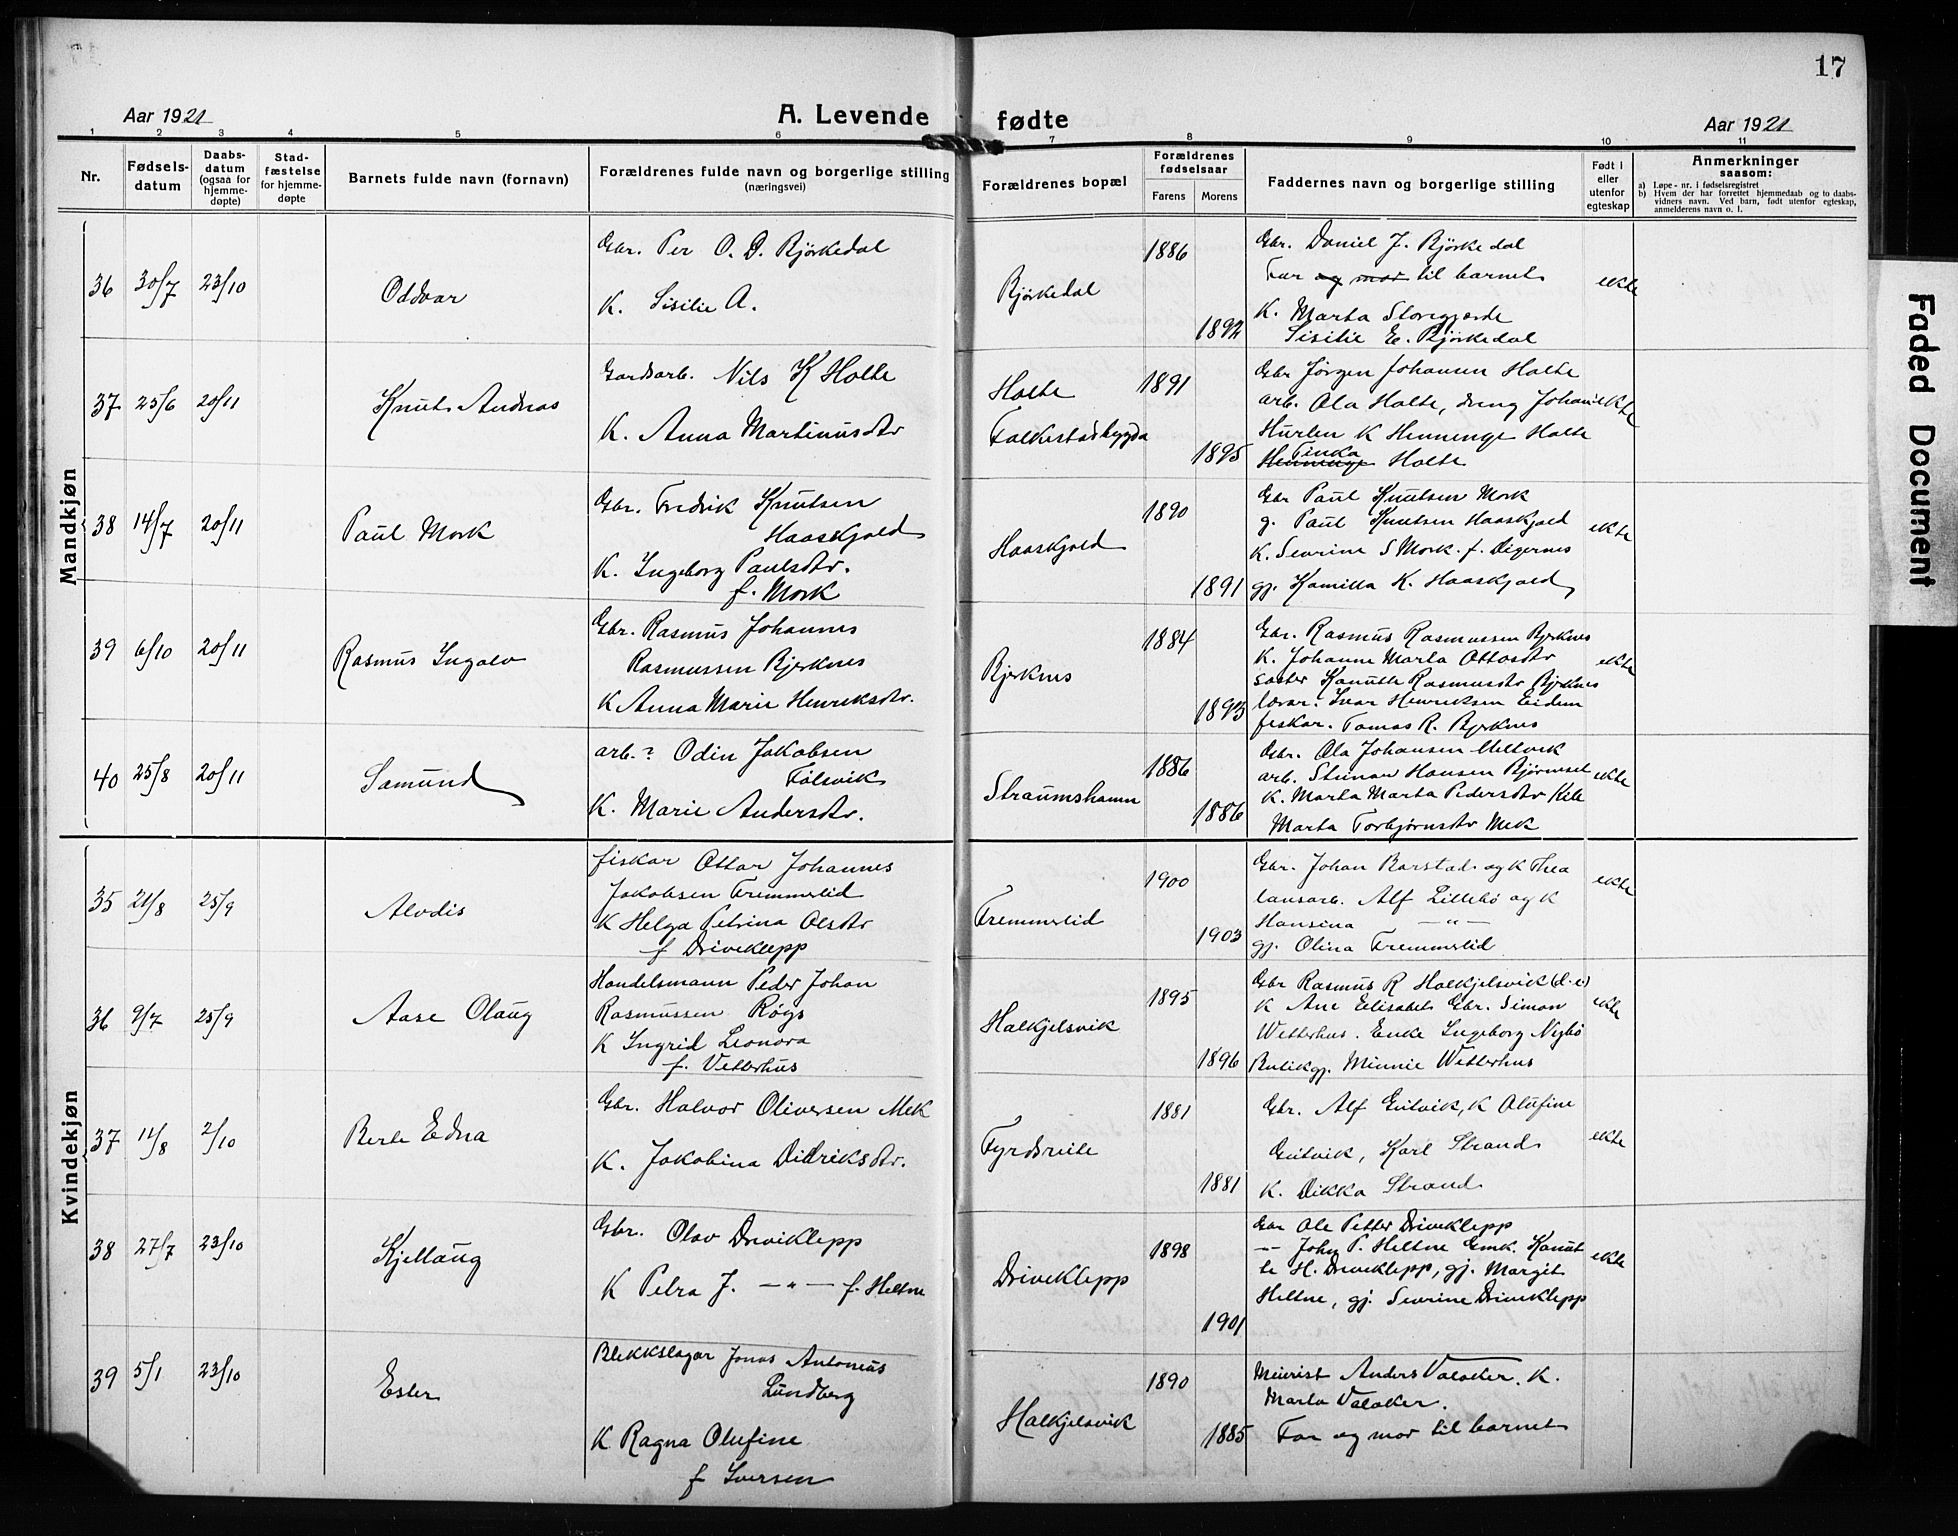 17
Aar 1921
A. Levende fødte
Aar 1921
1 2 3 4 5 6 7 8 9 10 11
Nr.
Fødsels-
datum
Daabs-
datum
(ogsaa for
hjemme-
døpte)
Stad-
fæstelse
for hjemme-
døpte
Barnets fulde navn (fornavn)
Forældrenes fulde navn og borgerlige stilling
(næringsvei)
Forældrenes bopæl
Forældrenes
fødselsaar
Farens Morens
Faddernes navn og borgerlige stilling
Født i
eller
utenfor
egteskap
Anmerkninger
saasom:
a) Løpe-nr. i fødselsregistret
b) Hvem der har forrettet hjemmedaab og to daabs-
vidners navn. Ved barn, født utenfor egteskap,
anmelderens navn o. l.
Mandkjøn
36 30/7 23/10 Oddvar
Gbr. Per O. D. Bjørkedal
K. Sisilie A.
Bjørkedal
1886
1892
Gbr. Daniel J. Bjørkedal
Far og mor til barnet
K. Marta Storegjerde
Sisilie E. Bjørkedal
ekte
37 25/6 20/11 Knut Andreas
Gardsarb. Nils K Holte
K. Anna Martinusdtr
Holte
Folkestadbygda
1891
1895
Gbr Jørgen Johansen Holte
arb. Ola Holte, dreng Johan
Hurlen K Henninge Holte
Henninge Tinka Holte
ekte
38 14/7 20/11 Paul Mork
Gbr. Fredrik Knutsen
Haaskjold
K. Ingeborg Paulsdtr.
f. Mork
Haaskjold
1890
1891
Gbr Paul Knutsen Mork
g. Paul Knutsen Haaskjold
K. Sevrine S Mork. f. Digernes
gj. Kamilla K. Haaskjold
ekte
39 6/10 20/11 Rasmus Ingolv
Gbr. Rasmus Johannes
Rasmussen Bjerknes
K Anna Marie Henriksdtr.
Bjerknes
1884
1893
Gbr. Rasmus Rasmussen Bjerknes
K. Johanne Marta Ottosdtr
søster Kanutte Rasmusdtr Bjerknes
lærar. Ivar Henriksen Eidem
fiskar. Tomas R. Bjerknes
ekte
40 25/8 20/11 Samund
arb.? Odin Jakobsen
Følsvik
K. Marie Andersdtr.
Straumshamn
1886
1886
Gbr. Ola Johansen
arb. Steinar Hansen Bjørneset
K. Marta Marta Pedersdtr Kile
Marta Torbjørnsdtr Mek
ekte
Kvindekjøn
35 21/8 25/9 Alvdis
fiskar Ottar Johannes
Jakobsen Fremmerlid
K Helga Petrina Olsdtr
f Driveklepp
Fremmerlid
1900
1903
Gbr. Johan Barstad og K Thea
lausarb. Alf Lillebø og K
Hansina — " —
gj. Olina Fremmerlid
ekte
36 9/7 25/9 Aase Olaug
Handelsmann Peder Johan
Rasmussen Røys
K Ingrid Leonora
f. Vetterhus
Halkjelsvik
1895
1896
Gbr Rasmus R Halkjelsvik (d. e)
K Ane Elisabet Gbr. Simon
Wetterhus. Enke Ingeborg Nesbø
Butikgj. Minnie Wetterhus
ekte
37 11/8 2/10 Berle Edna
Gbr. Halvor Oliversen Mek
K. Jakobina Didriksdtr.
Fyrdsreite
1881
1881
Gbr. Alf Gutvik, K Olufine
Gutvik, Karl Strand
K. Dikka Strand
ekte
38 27/7 23/10 Kjellaug
Gbr. Olav Driveklepp
K Petra J. — " — f. Heltne
Driveklepp
1898
1901
Gbr Ole Petter Driveklepp
— John P. Heltne Gmk. Kanut-
te H. Driveklepp, gj. Margit
Heltne, gj. Sevrine Driveklepp
ekte
39 5/1 23/10 Ester
Blekkslagar Jonas Antonius
Lundberg
K Ragna Olufine
f Iversen
Halkjelsvik
1890
1885
Meierist Anders Valaker. K.
Marta Valaker.
Far og mor til barnet
Faded Document